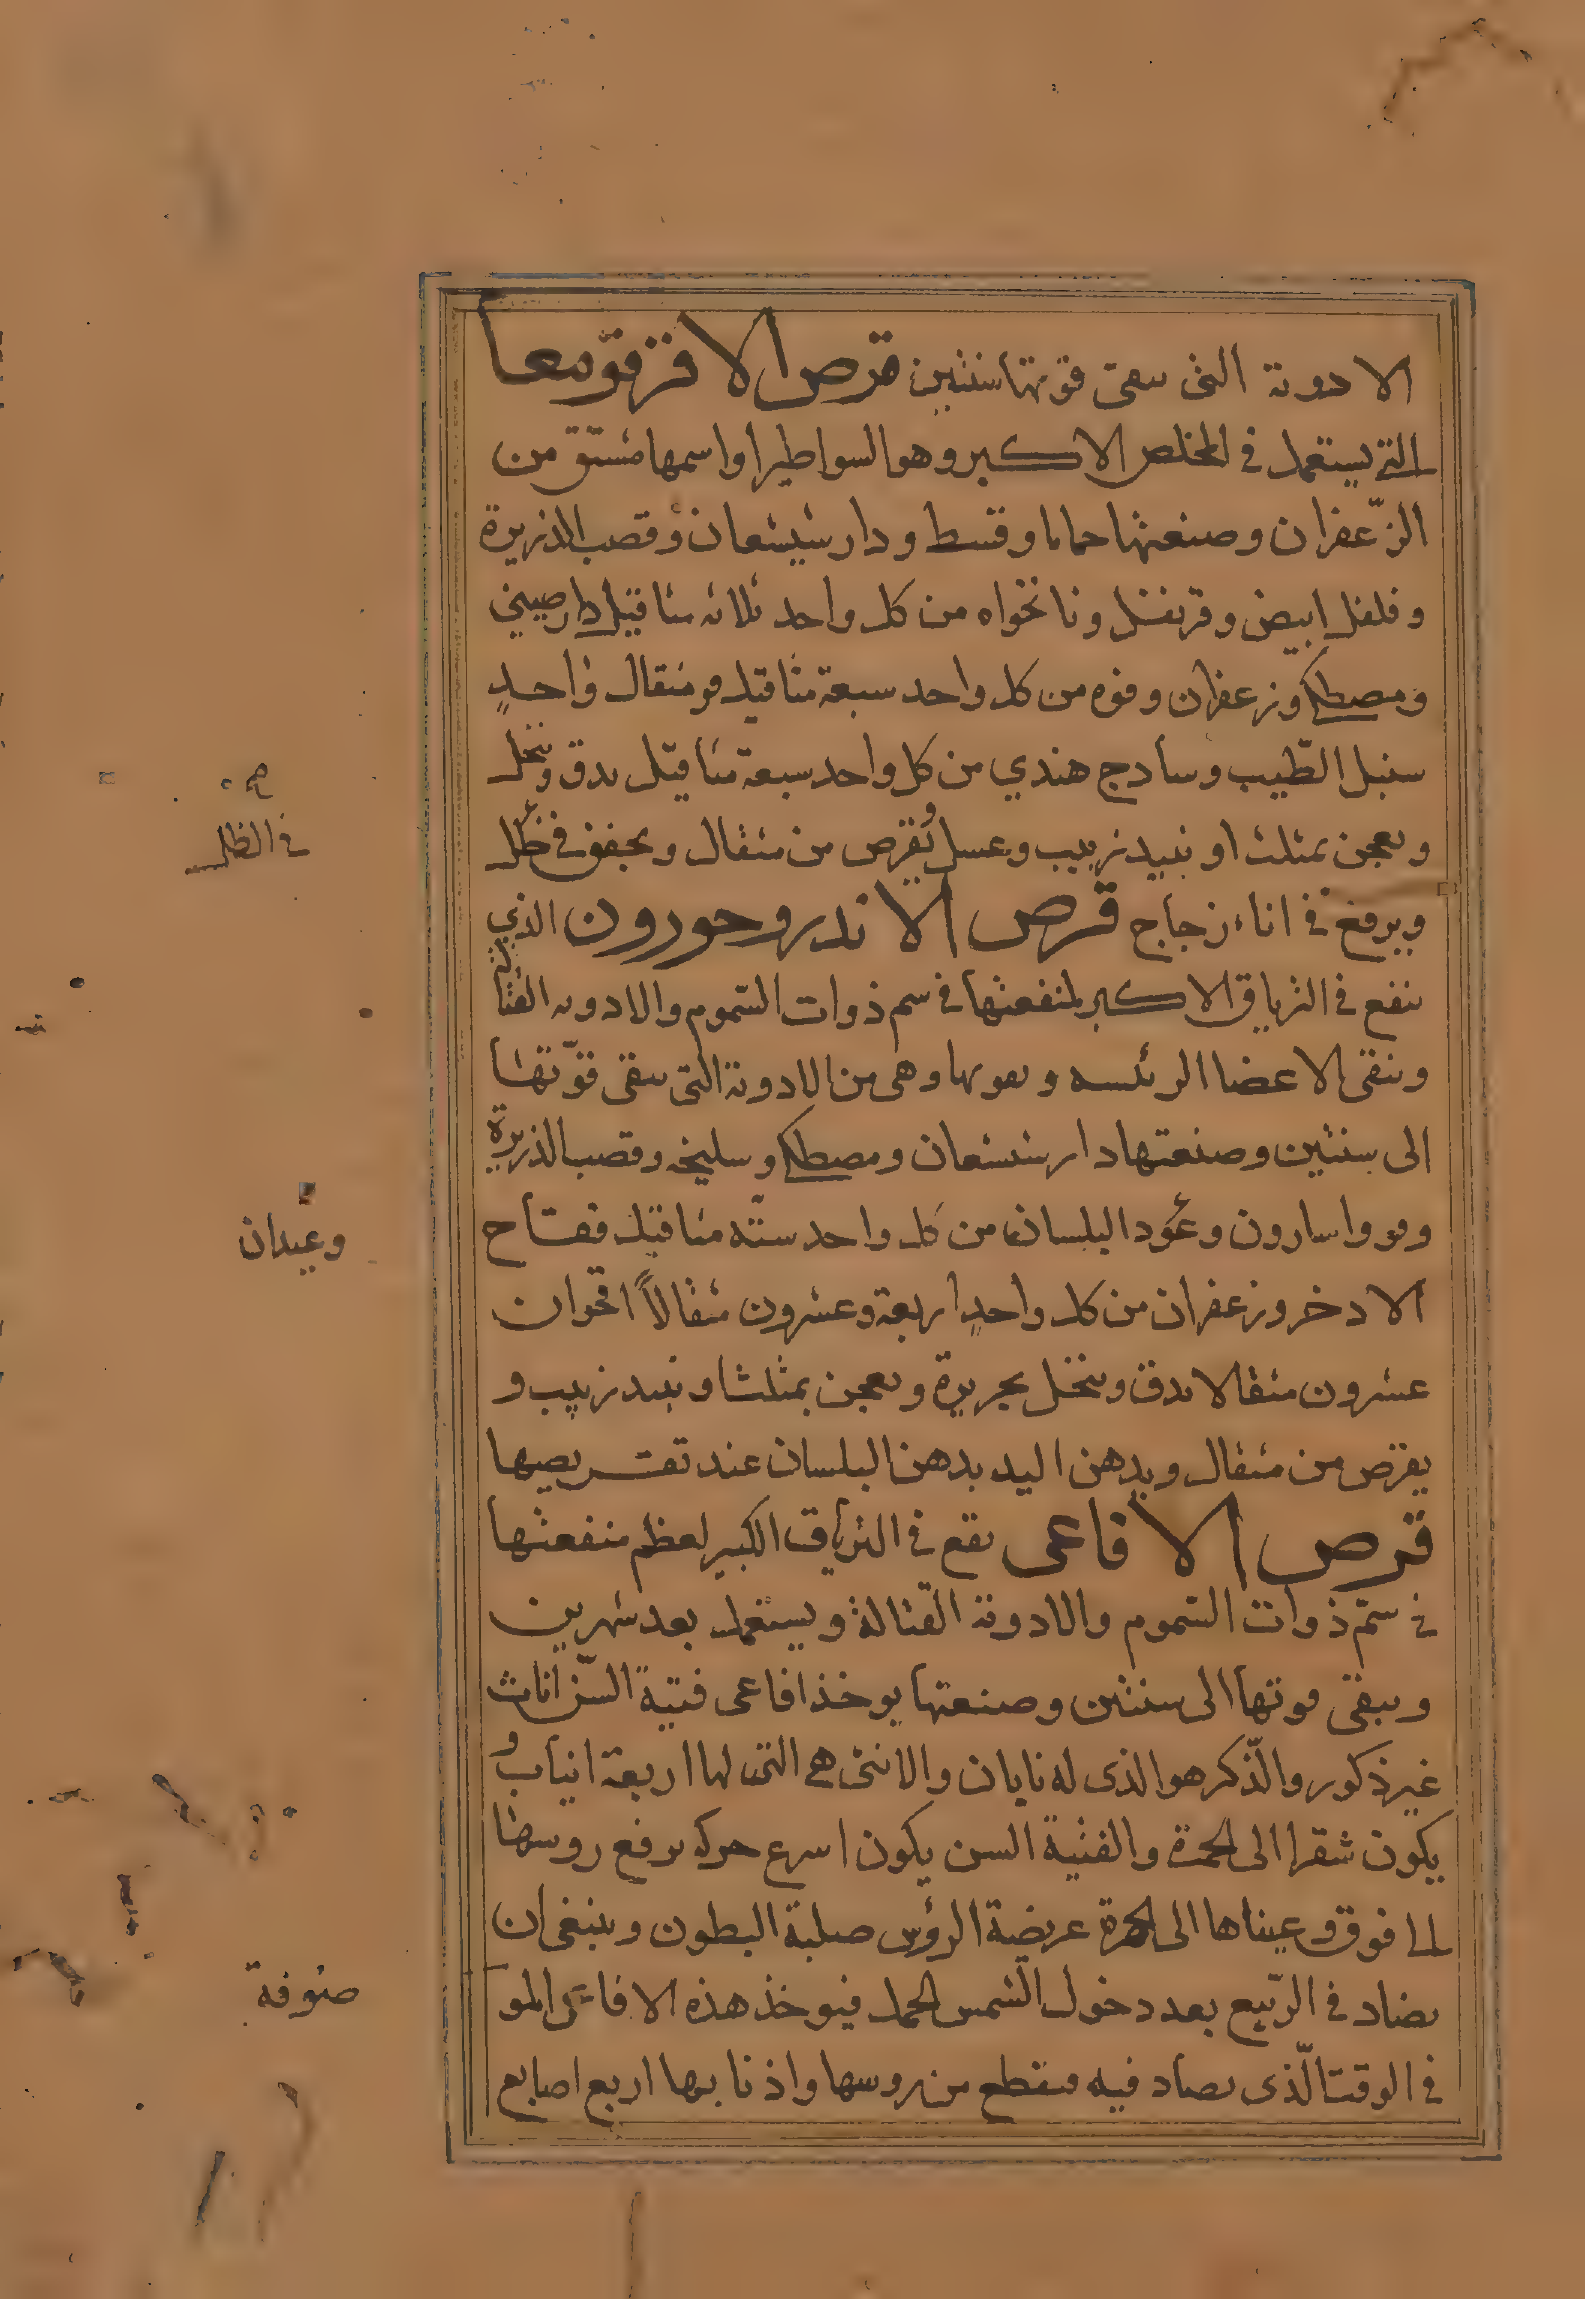 الادوية التي تبقى قوتها سنتين قرص الاقرقومعا
التي يستعمل في المخلص الاكبر وهو السواطيرا واسمها مشتق من
الزّعفران وصنعتها حماما وقسط ودارشيشعان وقصب الذريرة
وفلفل ابيض وقرنفل ونانخواه من كل واحد ثلاثه مثاقيل دارصيني
ومصطكي وزعفران وفوه من كل واحد سبعة مثاقيل مو مثقال واحدٍ
سنبل الطّيب وسادج هندي من كل واحد سبعة مثاقيل يدق وينخل
ويعجن بمثلث او نبيد زبيب وعسل ويُقرص من مثقال ويجفف في ظل
في الظل
ويرفع في اناء زجاج قرص الاندروحورون الذي
ينفع في الترياق الاكبر لمنفعتها في سم ذوات السّموم والادويه القتالة
وينقى الاعضا الرئسه ويقويها وهى من الادوية التى تبقى قوّتها
الى سنتين وصنعتها دارشيشعان ومصطكي وسليخه وقصب الذريرة
ومو واسارون وعود البلسان من كل واحد ستّه مثاقيل فقاح
وعيدان
الادخر وزعفران من كل واحدٍ اربعة وعشرون مثقالاً اقحوان
عشرون مثقالا يدق وينخل بحريرة ويعجن بمثلث او نبيد زبيب و
يقرص من مثقال ويدهن اليد بدهن البلسان عند تقريصها
قرص الافاعى يقع في الترياق الكبير لعظم منفعتها
في سمّ ذوات السّموم والادوية القتالة ويستعمل بعد شهرين
ويبقى قوتها الى سنتين وصنعتها يوخذ افاعى فتية السّن اناث
غير ذكور والذّكر هو الذى له نابان والانثى هي التى لها اربعة انياب و
يكون شقرا الى الحمرة والفتية السن يكون اسرع حركه يرفع روسها
الى فوق وعيناها الى الحمرة عريضة الرؤس صلبة البطون وينبغى ان
يصاد في الرّبيع بعد دخول الشمس الحمل فيوخذ هذه الافاعى المو
صوفة
في الوقت الّذى يصاد فيه فيقطع من روسها واذنابها اربع اصابع